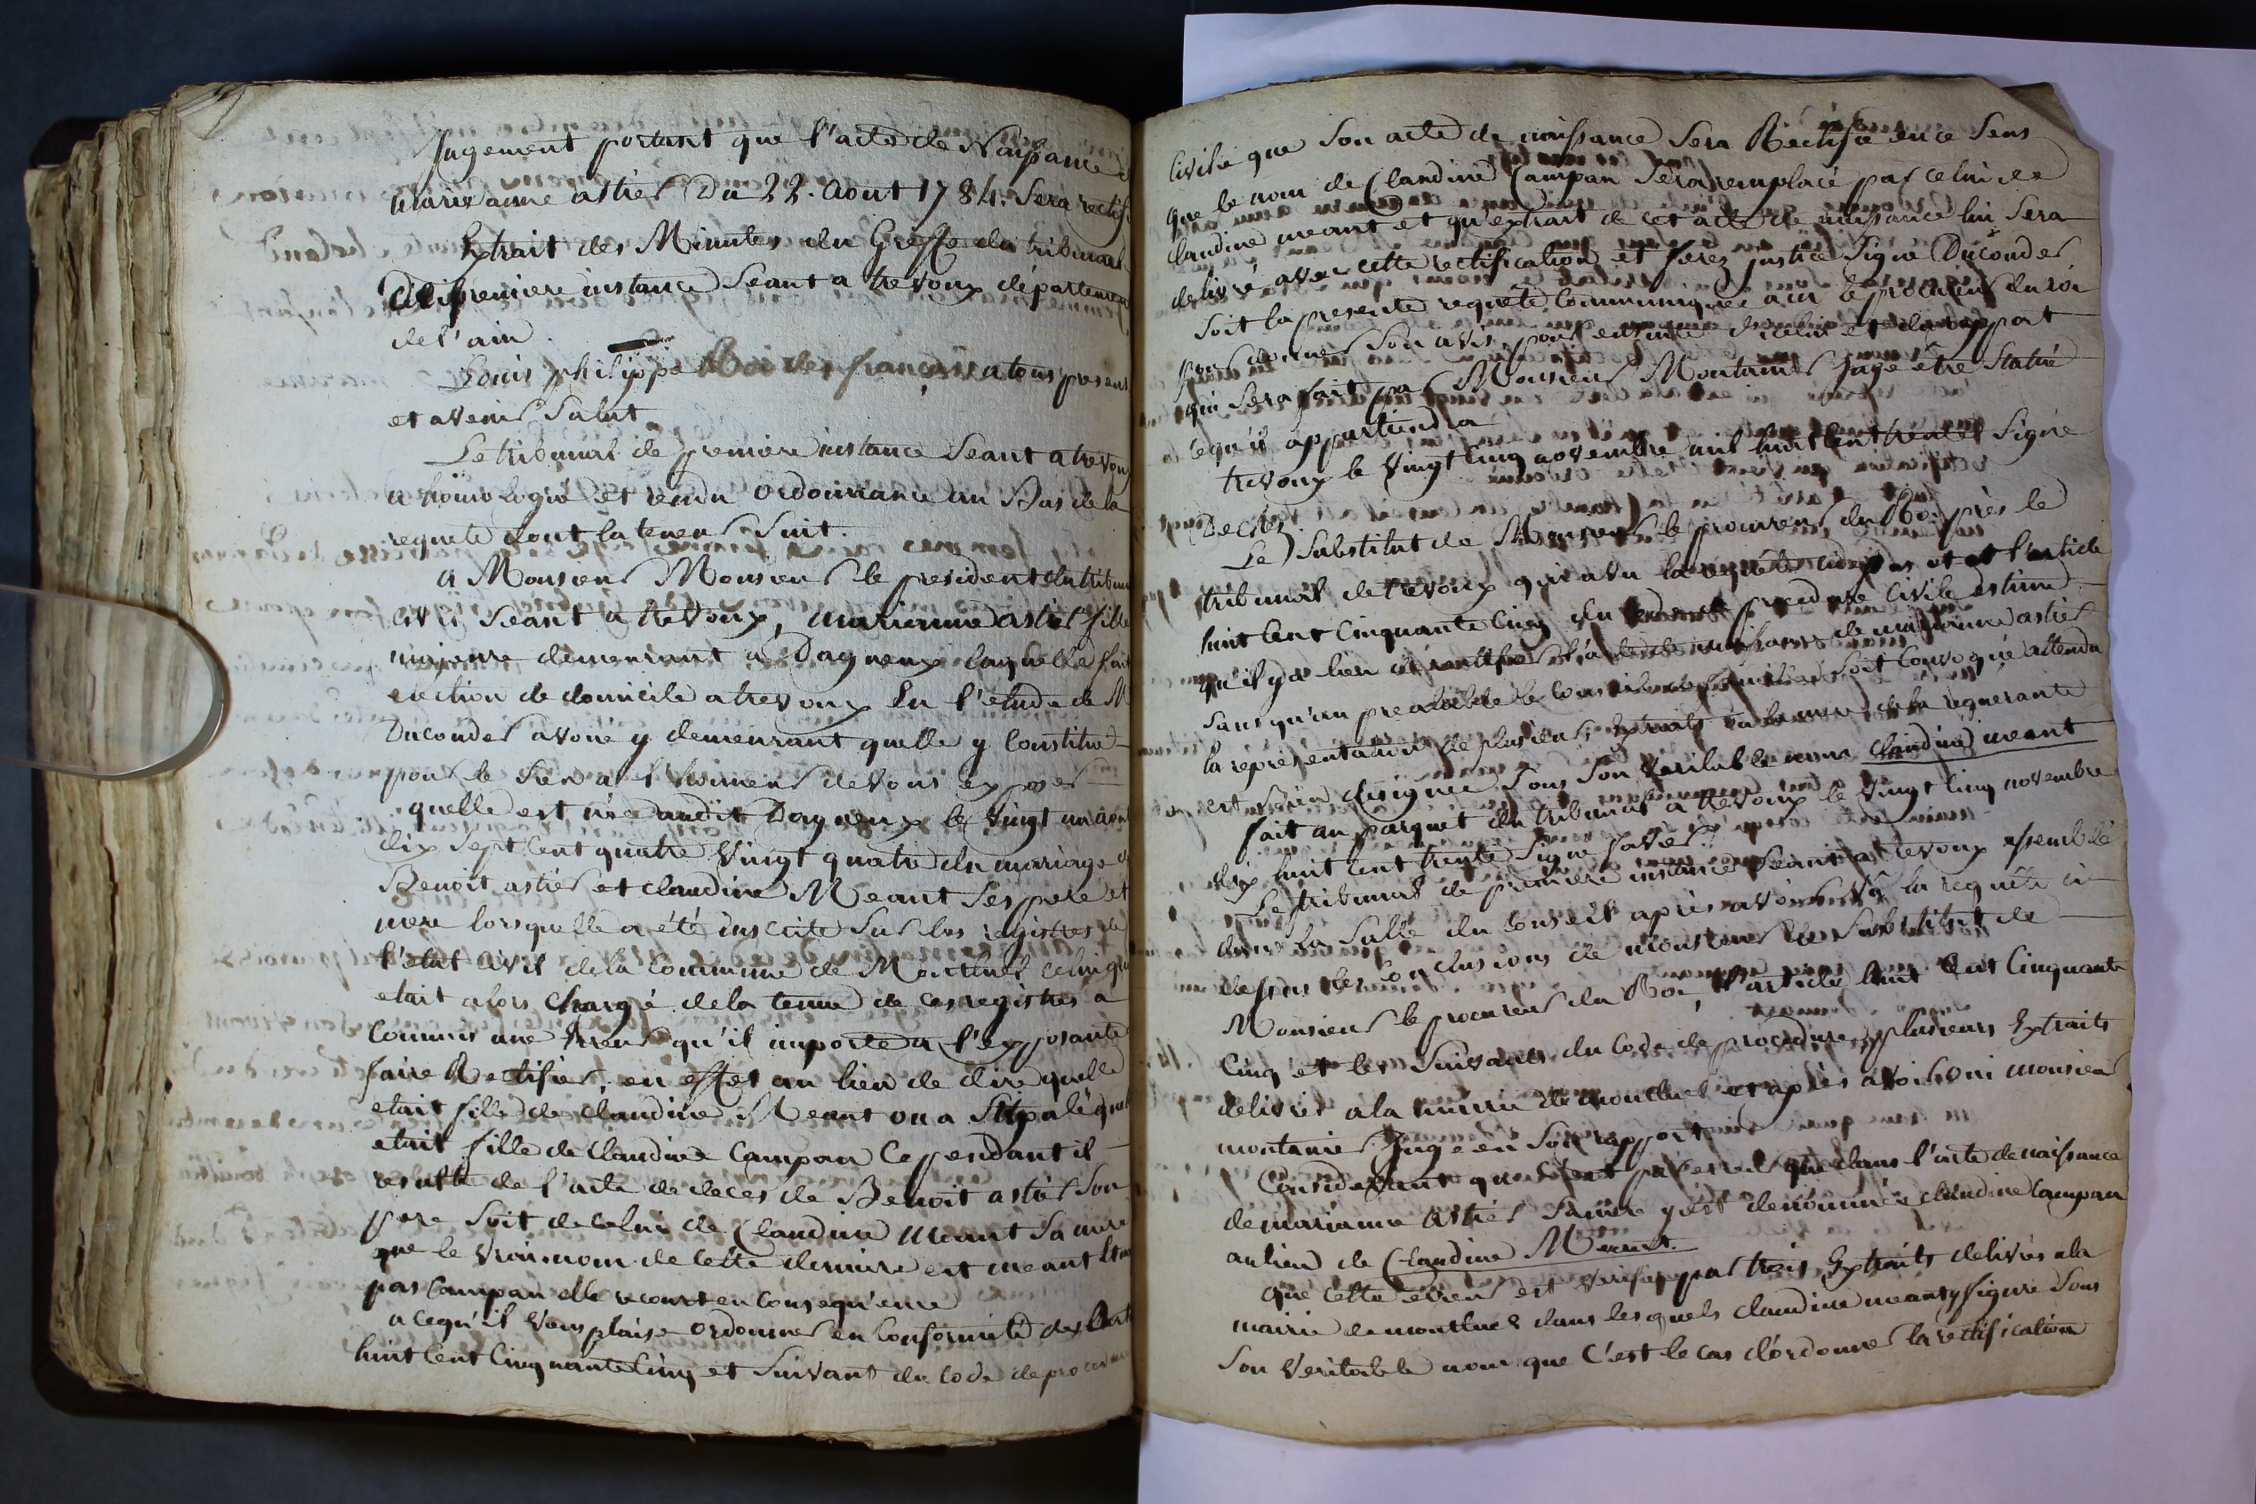 Jugement portant que l'acte de Naissance
Marie anne astier Du 22. Aout 1784. Sera rectif
Extrait des Minutes du Greffe du tribunal
De premiere instance Seant a trevoux départemen
de l'ain.
Louis philippe Roi des français a tous presens
et avenir Salut
Le tribunal de premiere instance Seant a trevoux
a homologué et rendu ordonnance au Bas de la
requete dont la teneur Suit.
a Monsieur Monsieur le president du tribunal
civil Seant a trevoux, marianne astier fille
majeure demeurant a Dagneux laquelle fait
election de domicile a trevoux En l'etude de M
Ducondes avoué y demeurant quelle y Constitue
pour le Sien a l'honneur de vous exposer
quelle est née audit Dagneux le vingt un aout
dix Sept Cent quatre vingt quatre du mariage de
Benoit astier et claudine Meant Ses pere et
mere lorsquelle a été inscrite Sur les registres de
l'etat civil de la Commune de Montluel celui qui
etait alors chargé de la tenue de ces registres a
Commis une Erreur qu'il importe a l'exposante
faire Rectifier. en effet au lieu de dire quelle
etait fille de claudine Meant on a Stipulé quel
etait fille de claudine Campan Cependant il
resulte de l'acte de deces de Benoit astier Son
pere Soit de Celui de Claudine Meant Sa mere
que le vrai nom de cette derniere est meant Et non
pas Campan elle recourt en Consequence
a cequ'il vous plaise ordonner en Conformité de
huit Cent Cinquante Cinq et Suivant du Code de procedure
civile que Son acte de naissance Sera Rectifié en ce Sens
que le nom de Claudine Campan Sera remplacé par celui de
claudine meant et qu'extrait de cet acte de naissance lui Sera
delivré avec cette rectification et ferez justice Signé Ducondes
Soit la presente requete Communiquée a M le procureur du roi
pour donner Son avis pour ensuite d'icelui et du rapport
qui Sera fait par Monsieur Montanier Juge être Statué
cequ'il appartiendra
trevoux le vingt Cinq novembre mil huit Cent trente Signé
Le Substitut de Monsieur le procureur du Roi près le
tribunal de trevoux qui a vu la requête et l'article
huit Cent Cinquante Cinq du procedure Civile estime
qu'il y a lieu a rectifier l'acte de naissance de marianne astier
Sans qu'au prealable le Conseil de famille Soit Convoqué attendu
la représentation de plusieurs Extraits ou la mere de la requerante
est bien designée Sous Son veritable nom claudine meant
fait au parquet du tribunal a trevoux le vingt Cinq novembre
dix huit Cent trente Signé
Le tribunal de premiere instance Seant a trevoux assemblé
dans la Salle du Conseil après avoir vu la requête ci
dessus les Conclusions de monsieur le Substitut de
Monsieur le procureur du Roi, l'article huit Cent Cinquante
Cinq et les Suivants du Code de procedure, plusieurs Extraits
delivrés a la mairie de montluel et après avoir oui monsieur
montanier Juge en Son rapport
Considerant que c'est par erreur que dans l'acte de naissance
de marianne astier Sa mere y est denommée claudine Campan
au lieu de Claudine Meant.
que cette erreur est verifiée par trois Extraits delivrés a la
mairie de montluel dans lesquels claudine meant y figure Sous
Son veritable nom que C'est le cas d'ordonner la rectification